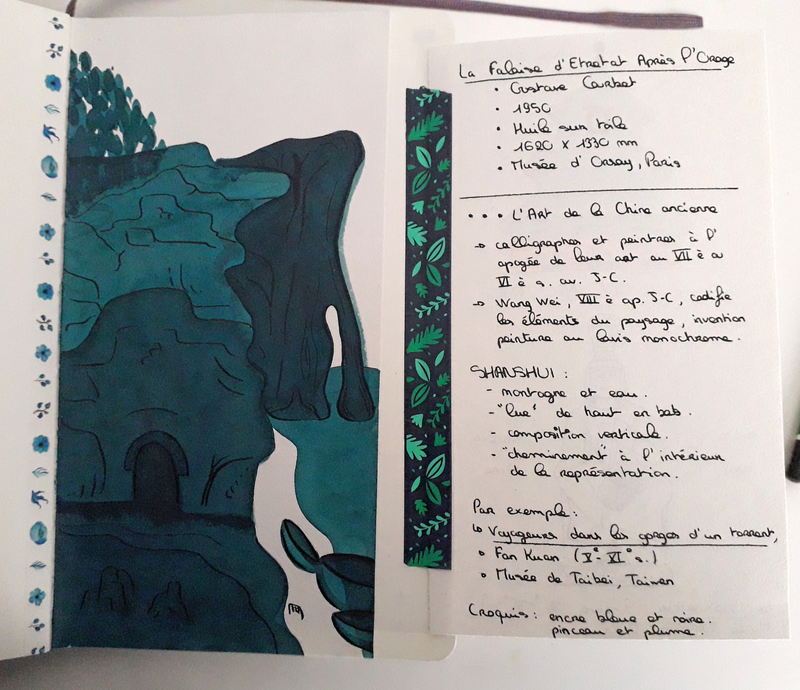 La Falaise d'Etretat Après l'Orage
• Gustave Courbet
• 1950
• Huile sur toile
• 1620 x 1330 mm
• Musée d'Orsay, Paris
• • • L'Art de la Chine ancienne
→ calligraphes et peintres à l'
apogée de leur art au VII è au
VI è s. av. J-C.
→ Wang Wei, VIII è ap. J-C, codifie
les éléments du paysage, invention
peinture au lavis monochrome.
SHANSHUI :
- montagne et eau.
- "lue" de haut en bas.
- composition verticale.
- "cheminement" à l'intérieur
de la représentation.
Par exemple :
↳ Voyageurs dans les gorges d'un torrent,
• Fan Kuan (Xe - XIe s.)
• Musée de Taibei, Taiwan
Croquis : encre bleue et noire.
pinceau et plume.